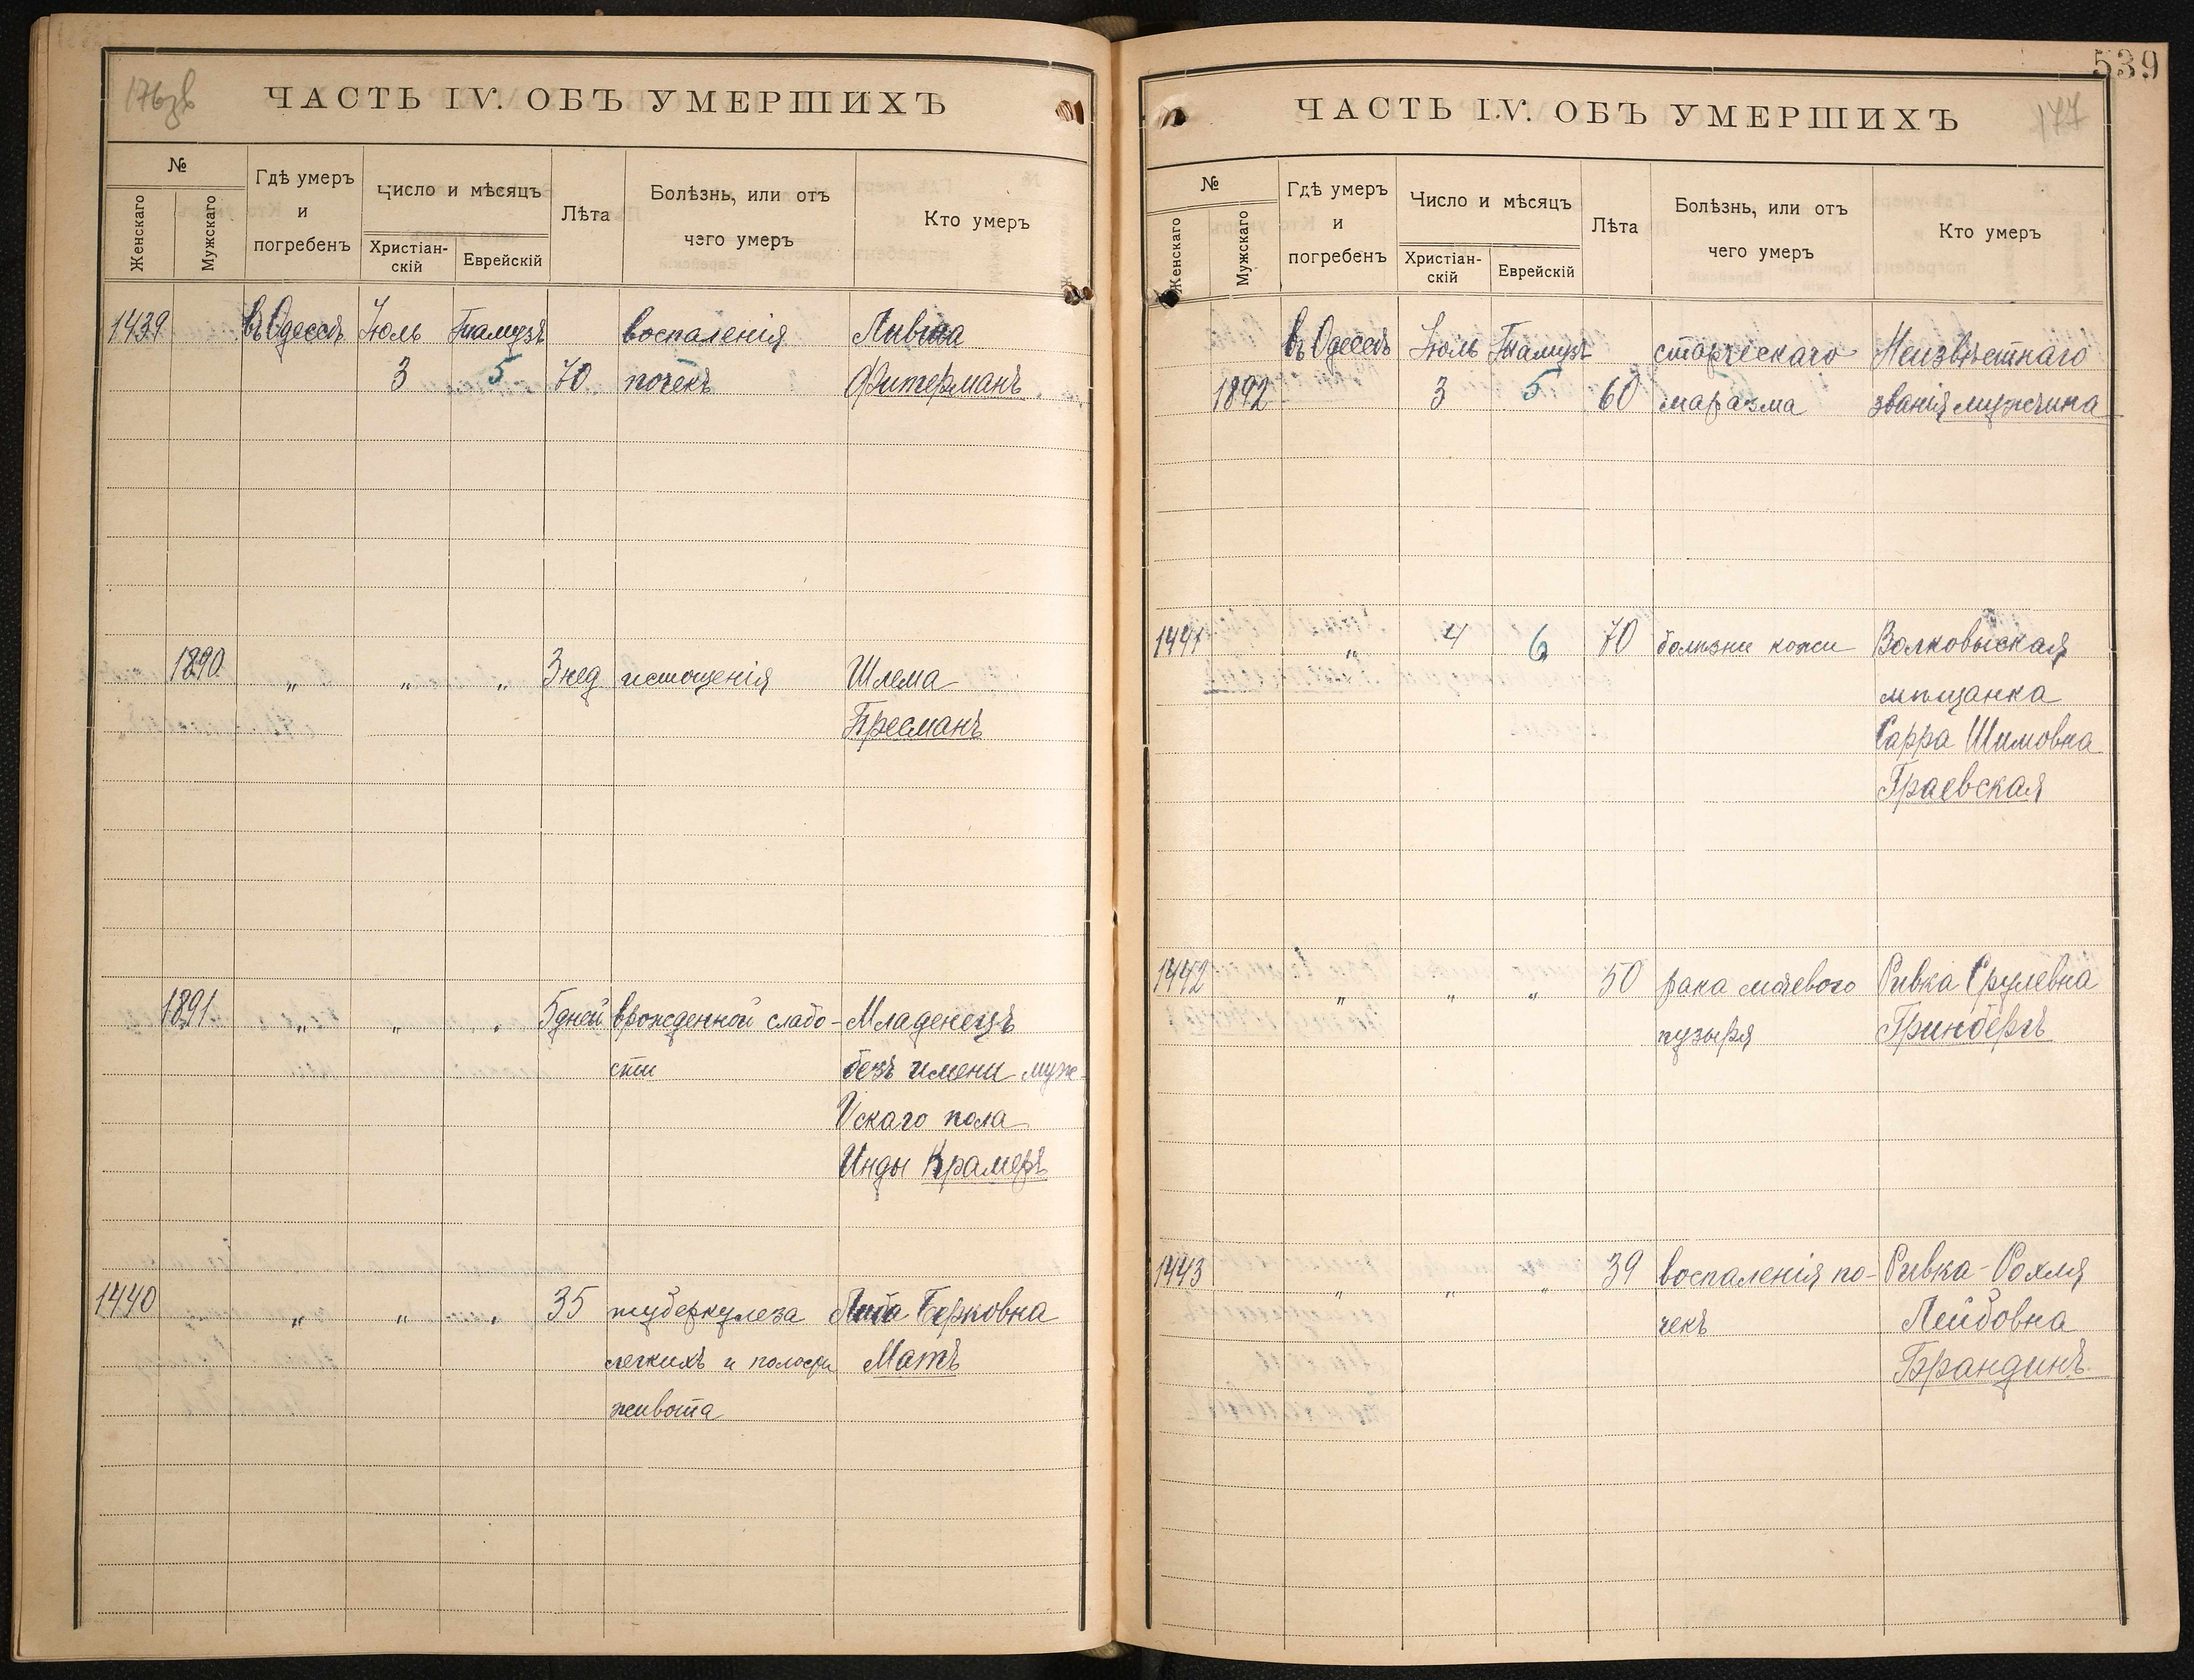 176зв
ЧАСТЬ IV. ОБЪ УМЕРШИХЪ
№
Женскаго
Мужскаго
Гдѣ умеръ
и
погребенъ
Число и мѣсяцъ
Христіан-
скій
Еврейскій
Лѣта
Болѣзнь, или отъ
чего умеръ
Кто умеръ
1439 въ Одессѣ Іюль Тамузъ воспаленія Ливша
3 5 70 почекъ Фитерманъ
1890 „ „ „ 3 нед истощенія Шлема
Пресманъ
1891 „ „ „ 5 дней врожденной слабо- Младенецъ
сти безъ имени муж-
скаго пола
Инды Крамеръ
1440 „ „ „ 35 туберкулеза Либа Берковна
легкихъ и полости Матъ
живота
539
ЧАСТЬ IV. ОБЪ УМЕРШИХЪ
177
№
Женскаго
Мужскаго
Гдѣ умеръ
и
погребенъ
Число и мѣсяцъ
Христіан-
скій
Еврейскій
Лѣта
Болѣзнь, или отъ
чего умеръ
Кто умеръ
въ Одессѣ Іюль Тамузъ старческаго Неизвѣстнаго
1892 3 5 60 маразма званія мужчина
1441 „ 4 6 70 болѣзни кожи Волковыская
мѣщанка
Сарра Шимовна
Граевская
1442 „ „ „ 50 рака мочевого Ривка Срулевна
пузыря Гринбергъ
1443 „ „ „ 39 воспаленія по- Ривка-Рохля
чекъ Лейбовна
Брандинъ